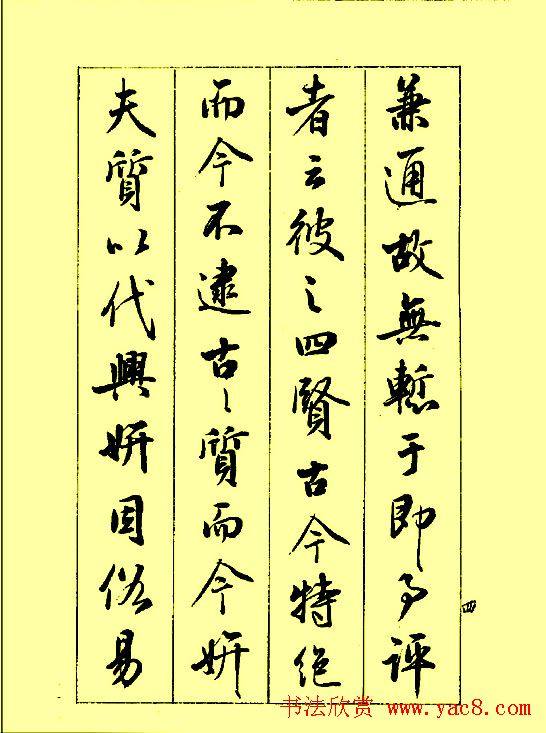 兼通故無慙于即事評
者云彼之四賢古今特絕
而今不逮古〻質而今妍
夫質以代興妍因俗易
四
书法欣赏 www.yac8.com